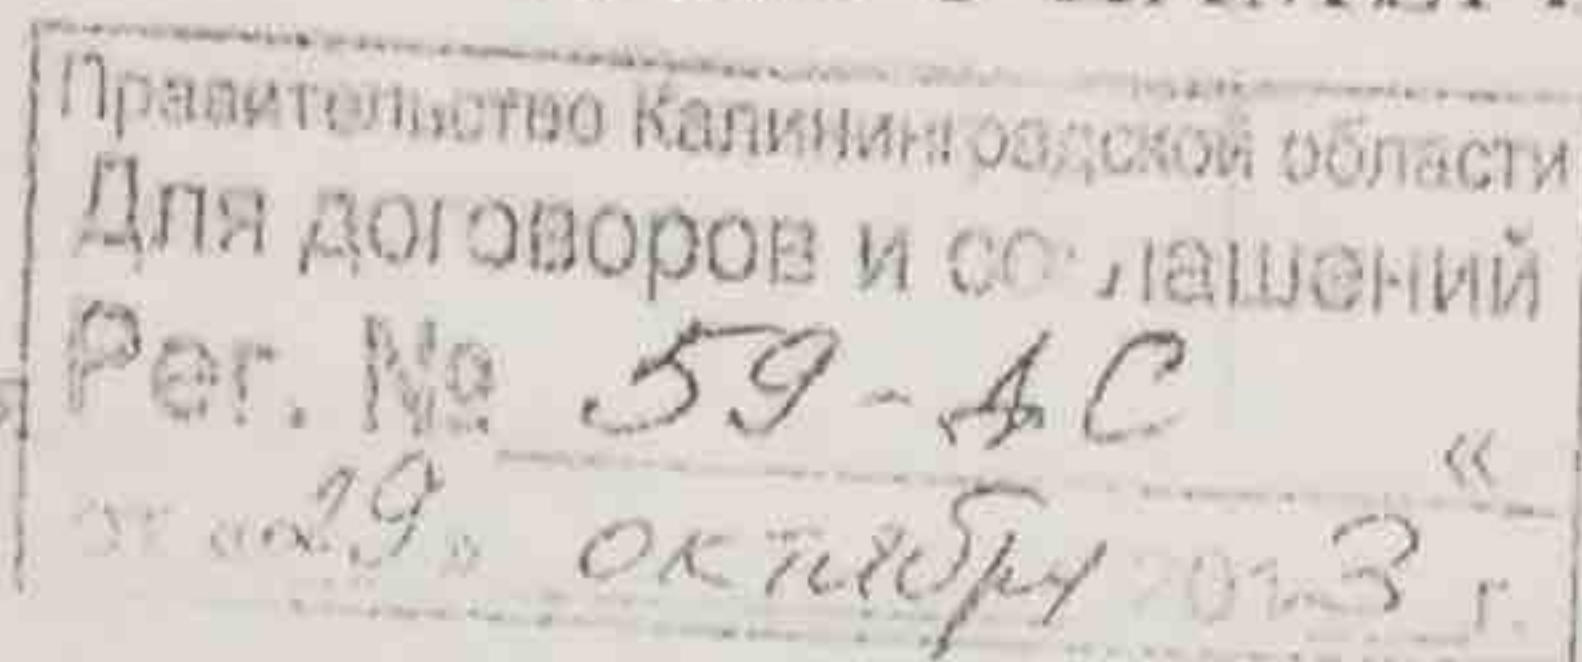 Правительство Калининградской области
Для договоров и соглашений
Рег. № 59-ДС «
от «29» октября 2013 г.